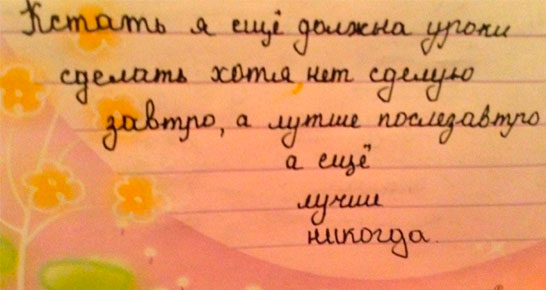 Кстать я ещё должна уроки
сделать хотя, нет сделую
завтро, а лутше послезавтро
а ещё
лучши
никогда.